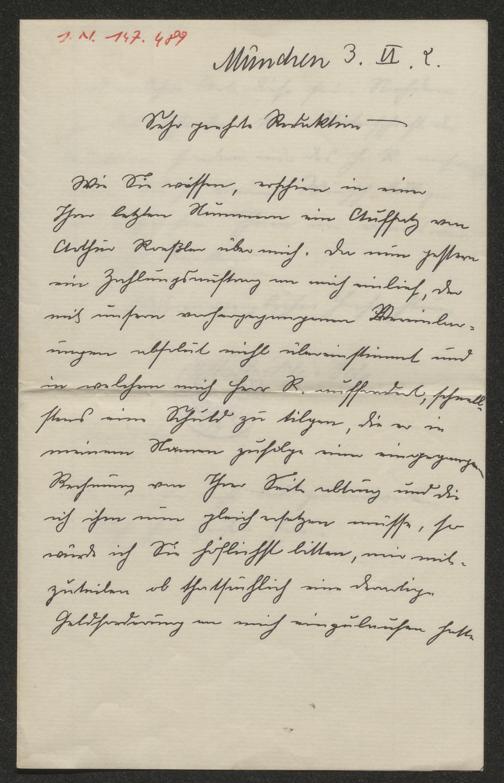 J. N. 147.489
München 3. VI. 2.
Sehr geehrte Redaktion —
Wie Sie wissen, erschien in einer
Ihrer letzten Nummern ein Aufsatz von
Arthur Roeßler über mich. Da nun gestern
ein Zahlungsauftrag an mich einlief, der
mit unsern vorhergegangenen Vereinbar-
ungen absolut nicht übereinstimmt und
in welchem mich Herr R. auffordert, schnell-
stens eine Schuld zu tilgen, die er in
meinem Namen zufolge einer eingegangenen
Rechnung von Ihrer Seite abtrug und die
ich ihm nun gleich ersetzen müsse, so
würde ich Sie höflichst bitten, mir mit-
zuteilen ob thatsächlich eine derartige
Geldforderung an mich einzulaufen hatte